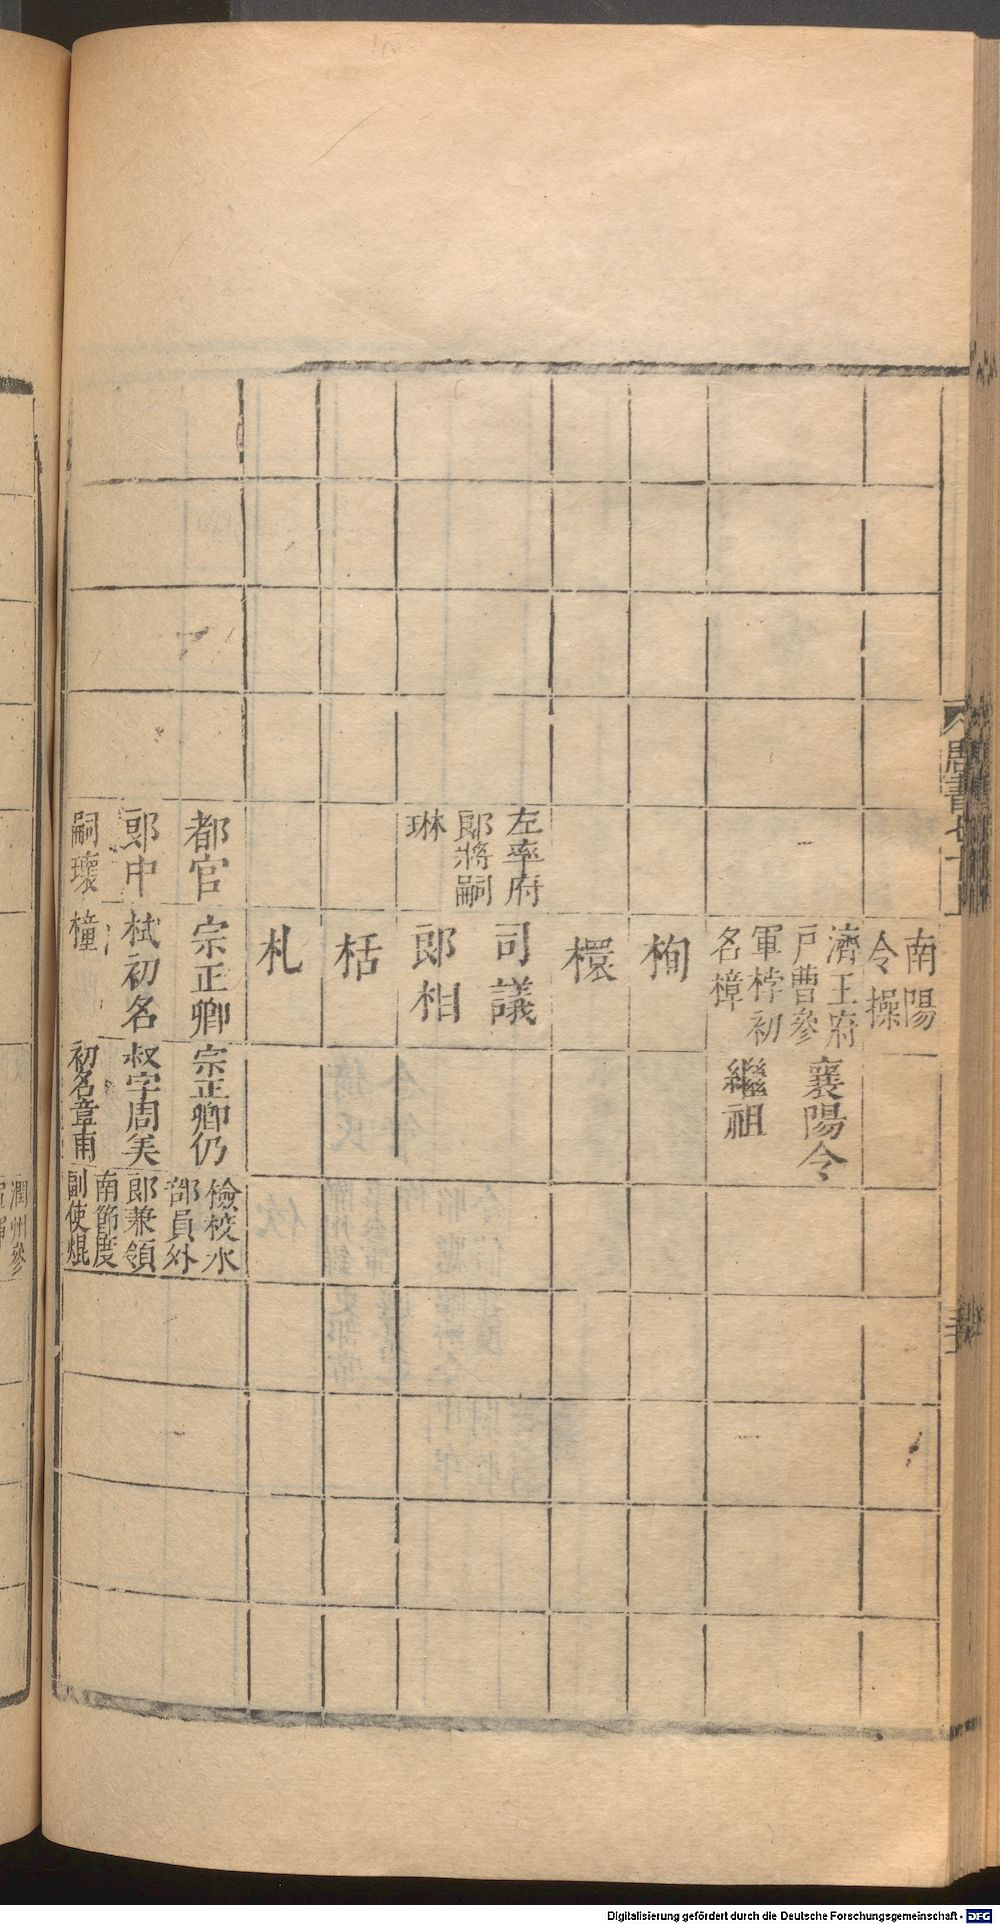 南陽
令操
濟王府
戶曹參
軍桲初
名樟
襄陽令
繼祖
栒
檈
左率府
郎將嗣
琳
司議
郎相
栝
札
都官
郎中
嗣瓌
宗正卿
栻初名
橦
宗正卿仍
叔字周美
初名章甫
檢校水
部員外
郎兼領
南節度
副使焜
潤州參
Digitalisierung gefördert durch die Deutsche Forschungsgemeinschaft - DFG